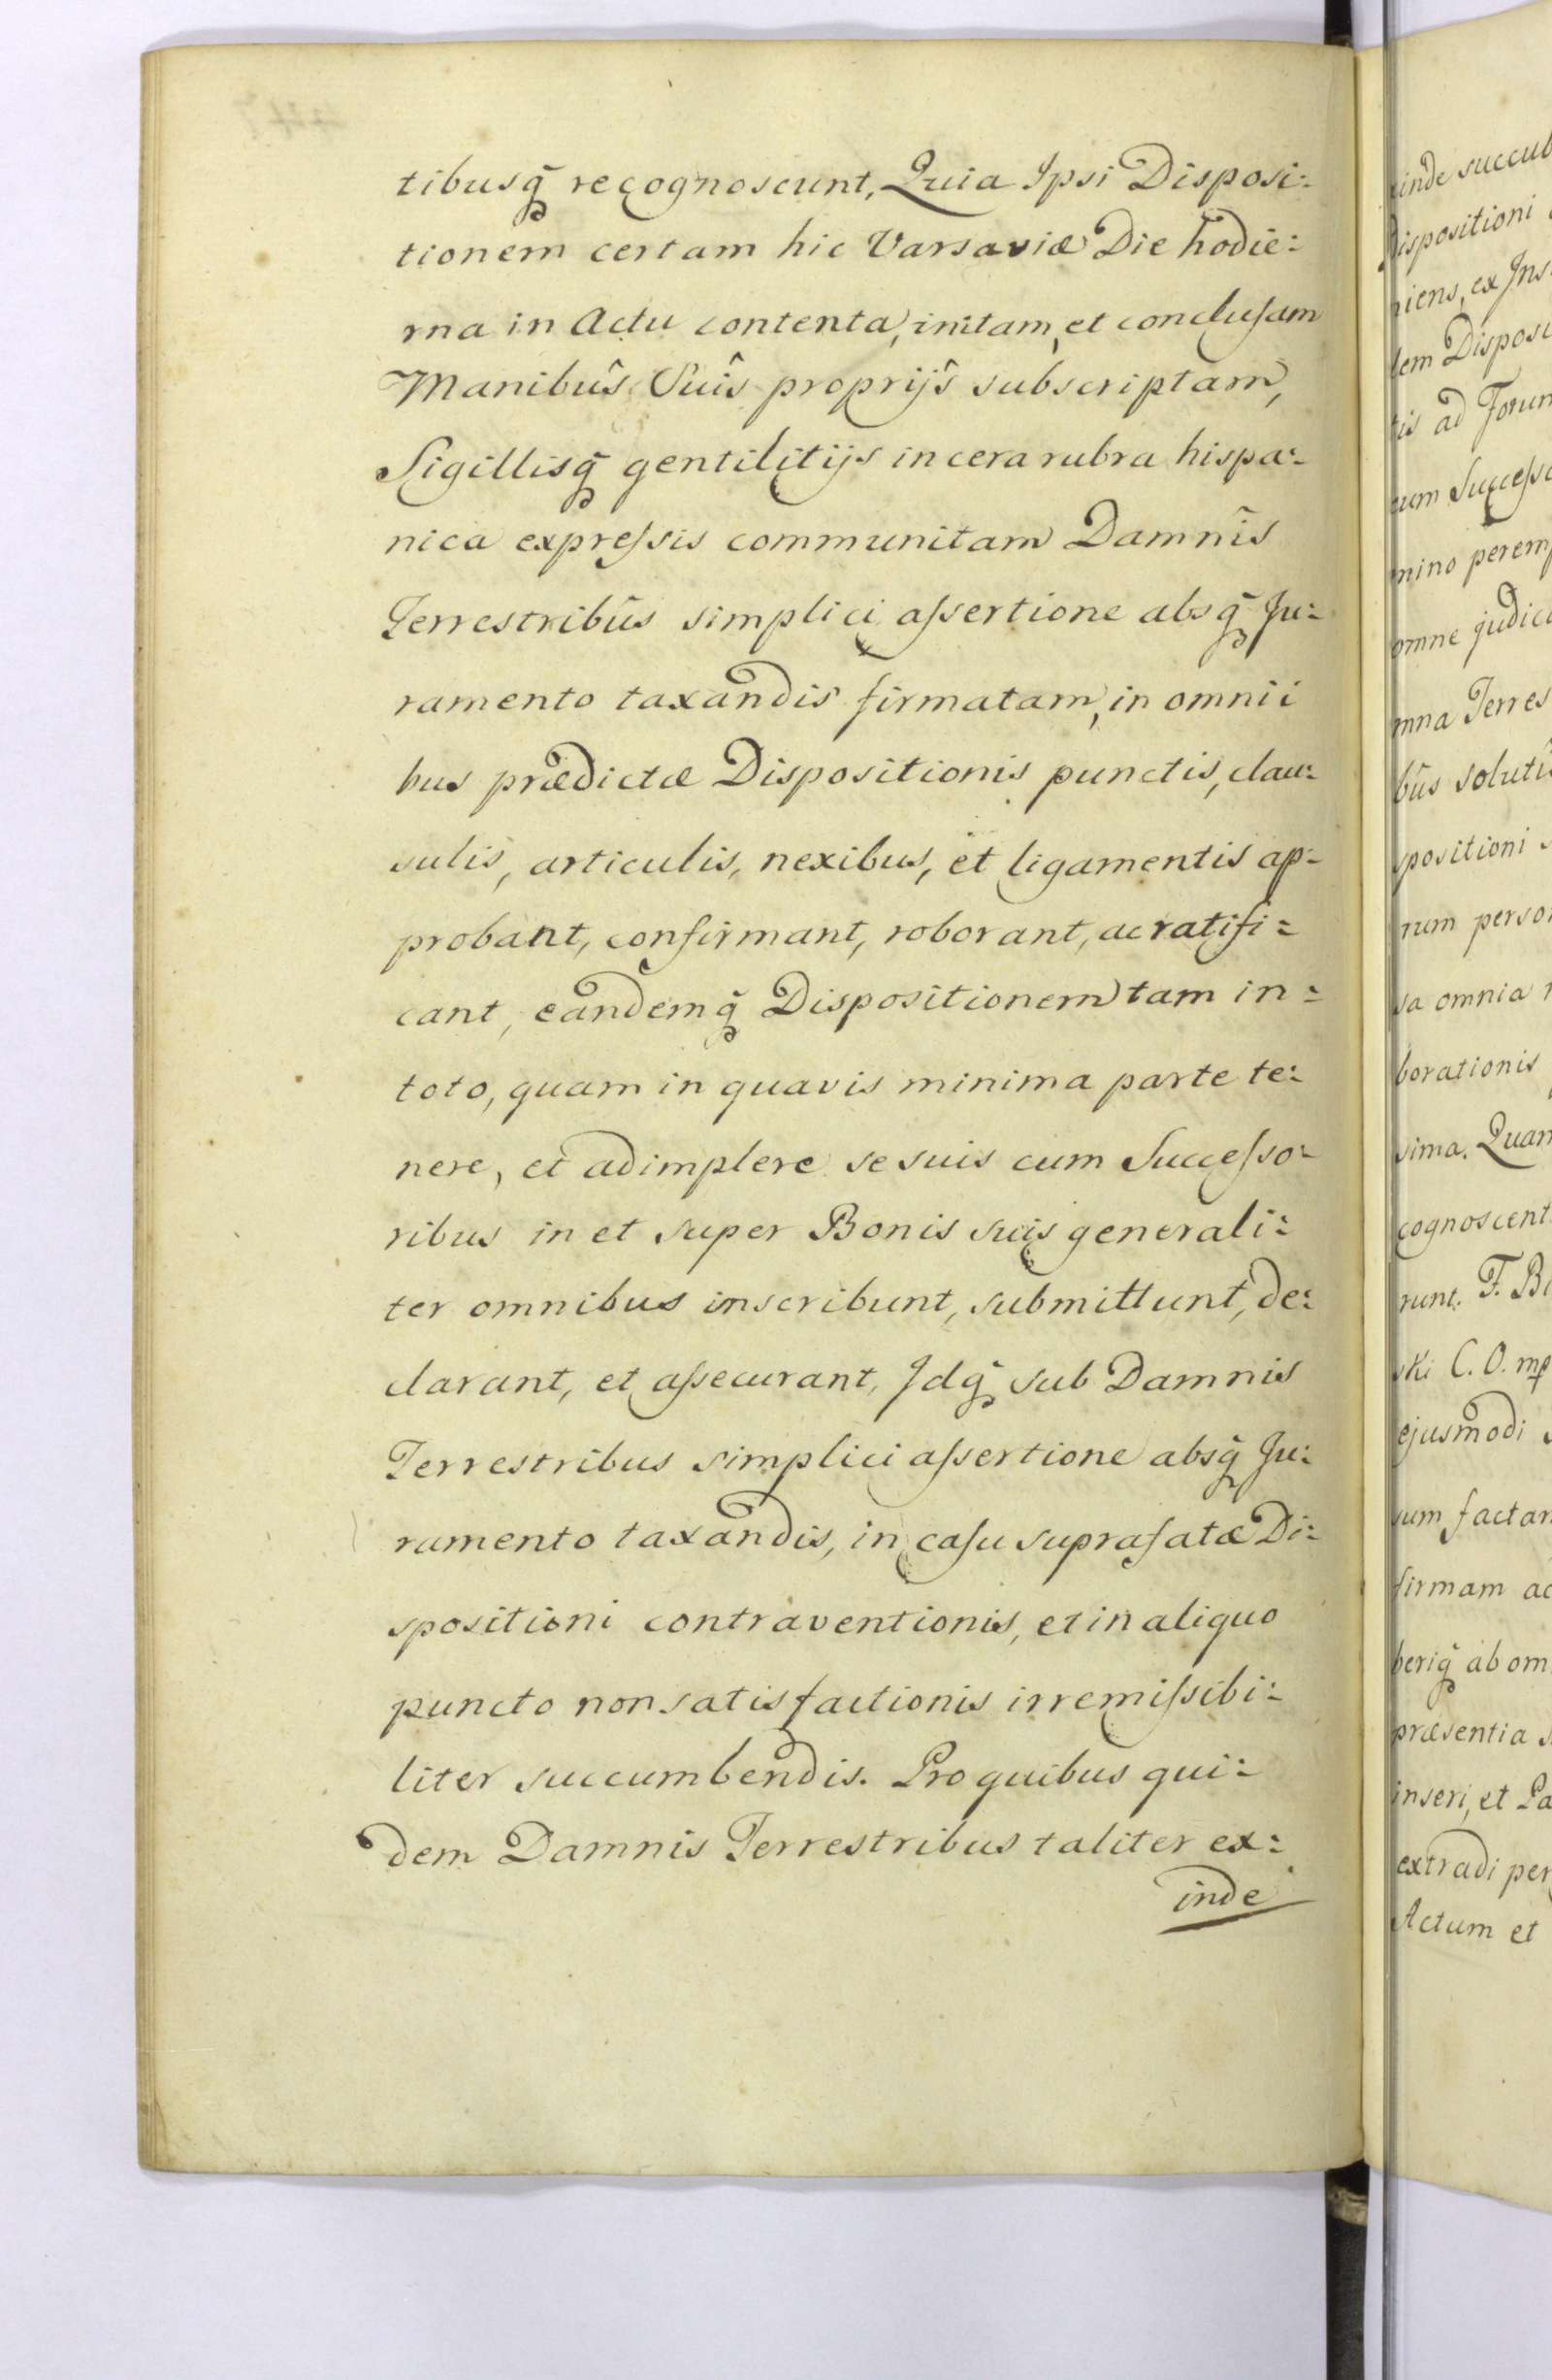 tibusq̃ recognoscunt, Quia Ipsi Disposi:
tionem certam hic Varsaviæ Die hodie:
rna in Actu contenta, initam, et conclusam
Manibûs Suîs proprijs subscriptam,
Sigillisq̃ gentilitijs in cera rubra hispa:
nica expreſsis communitam Damnîs
Terrestribûs simplici aſsertione absq̃ Ju:
ramento taxandis firmatam, in omnii
bus prædictæ Dispositionis punctis, clau:
sulis, articulis, nexibus, et ligamentis ap:
probant, confirmant, roborant, ac ratifi:
cant, eandemq̃ Dispositionem tam in:
toto, quam in quavis minima parte te:
nere, et adimplere se suis cum Succeſso:
ribus in et super Bonis suis generali:
ter omnibus inscribunt, submittunt, de:
clarant, et aſsecurant, Jdq̃ sub Damnis
Terrestribus simplici aſsertione absq̃ Ju:
ramento taxandis, in caſu supraſatæ Di:
spositioni contraventionis, et in aliquo
puncto non satisfactionis irremiſsibi:
liter succumbendis. Pro quibus qui:
dem Damnis Terrestribus taliter ex:
inde
inde succub
Dispositioni
niens, ex Ins
dem Disposi
tis ad Forum
cum Succeſso
mino peremp
omne judica
mna Terres
bûs solutî
spositioni
rum person
sa omnia
borationis
sima. Quam
cognoscent
runt. F. Bi
ski C. O. mp
ejusmodi
sum factam
firmam ac
beriq̃ ab om
præsentia
inseri, et Pa
extradi per
Actum et